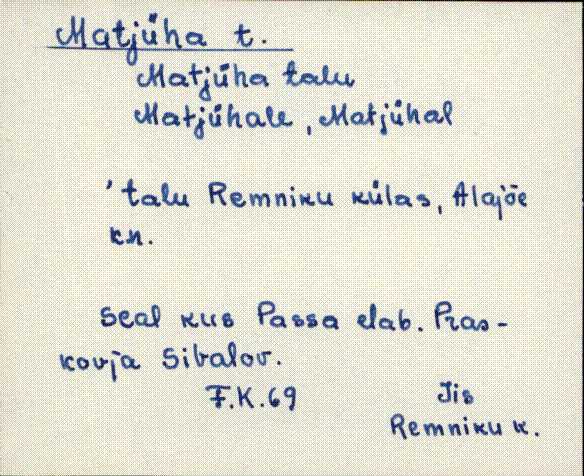 Matjüha t.
Matjüha talu
Matjühale, Matjühal
'talu Remniku külas, Alajõe
kn.
seal kus Passa elab. Pras-
kovja Sibalov.
F.K.69
Iis
Remniku k.